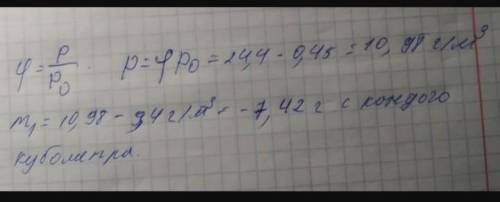 φ = p/p₀. p = φp₀ = 24,4 - 0,45 = 10,98 г/м³
m₁ = 10,98 - 9,4 г/м³ = -7,42 г с каждого
кубометра.